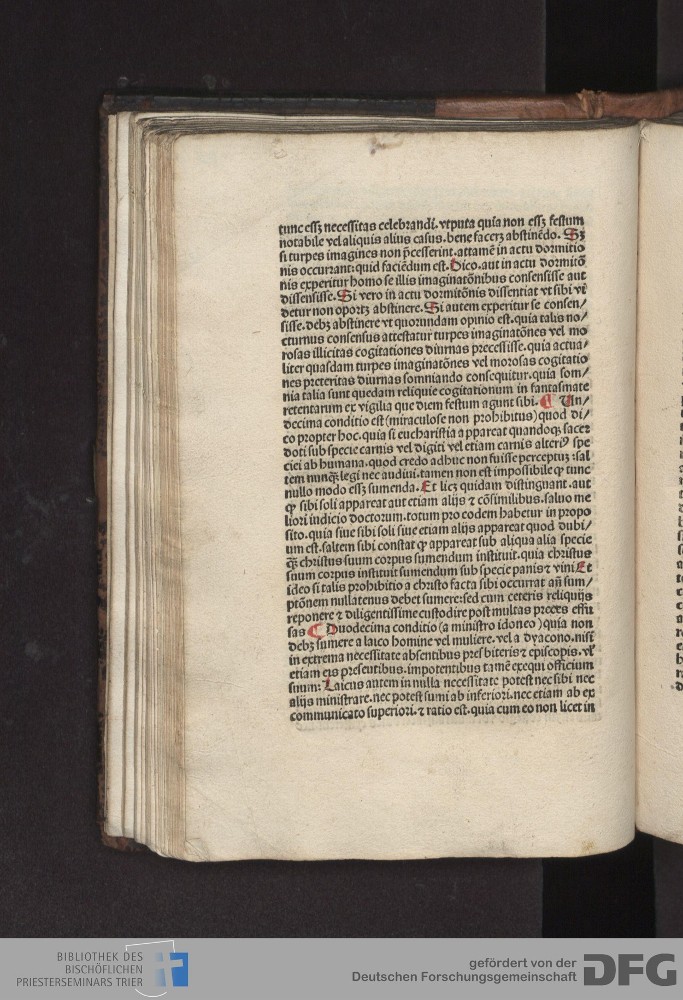 tunc essꝫ necessitas celebrandi. vtputa quia non essꝫ festum
notabile vel aliquis alius casus. bene facerꝫ abstinēdo. Sꝫ
si turpes imagines non p̄cesserint. attamē in actu dormitio
nis occurrant: quid faciēdum est. Dico. aut in actu dormitō
nis experitur homo se illis imaginatōnibus consensisse aut
dissensisse. Si vero in actu dormitōnis dissentiat vt sibi vi
detur non oportꝫ abstinere. Si autem experitur se consen/
sisse. debꝫ abstinere vt quorundam opinio est. quia talis no/
cturnus consensus attestatur turpes imaginatōnes vel mo
rosas illicitas cogitationes diurnas precessisse. quia actua/
liter quasdam turpes imaginatōnes vel morosas cogitatio
nes preteritas diurnas somniando consequitur. quia som/
nia talia sunt quedam reliquie cogitationum in fantasmate
retentarum ex vigilia que diem festum agunt sibi. ¶ Un/
decima conditio est (miraculose non prohibitus) quod di/
co propter hoc. quia si eucharistia appareat quandoqꝫ sacer
doti sub specie carnis vel digiti vel etiam carnis alteriꝰ spe
ciei ab humana. quod credo adhuc non fuisse perceptuꝫ: sal
tem nunqꝫ legi nec audiui. tamen non est impossibile ꝙ tunc
nullo modo essꝫ sumenda. Et licꝫ quidam distinguant. aut
ꝙ sibi soli appareat aut etiam alijs ⁊ cōsimilibus. saluo me
liori iudicio doctorum. totum pro eodem habetur in propo
sito. quia siue sibi soli siue etiam alijs appareat quod dubi/
um est. saltem sibi constat ꝙ appareat sub aliqua alia specie
q̄ꝫ christus suum corpus sumendum instituit. quia christus
suum corpus instituit sumendum sub specie panis ⁊ vini Et
ideo si talis prohibitio a christo facta sibi occurrat an̄ sum/
ptōnem nullatenus debet sumere: sed cum ceteris reliquijs
reponere ⁊ diligentissime custodire post multas preces effu
sas ¶ Duodecima conditio (a ministro idoneo) quia non
debꝫ sumere a laico homine vel muliere. vel a dyacono. nisi
in extrema necessitate absentibus presbiteris ⁊ episcopis. vl̓
etiam eis presentibus. impotentibus tamē exequi officium
suum: Laicus autem in nulla necessitate potest nec sibi nec
alijs ministrare. nec potest sumi ab inferiori. nec etiam ab ex
communicato superiori. ⁊ ratio est. quia cum eo non licet in
BIBLIOTHEK DES
BISCHÖFLICHEN
PRIESTERSEMINARS TRIER
gefördert von der
Deutschen Forschungsgemeinschaft
DFG